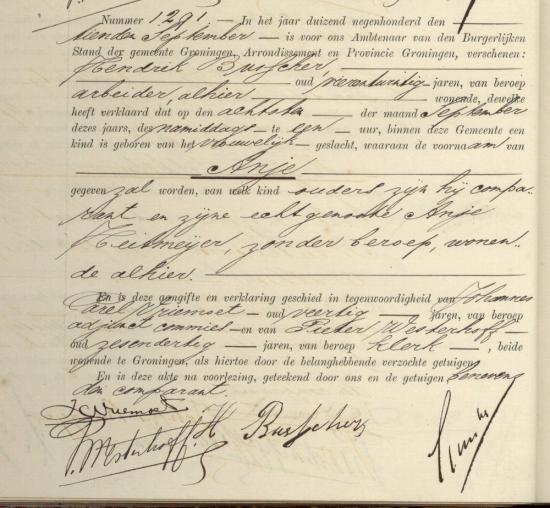 Nummer 1291 — In het jaar duizend negenhonderd den
tienden September — is voor ons Ambtenaar van den Burgerlijken
Stand der gemeente Groningen, Arrondissement en Provincie Groningen, verschenen:
Hendrik Busscher,
oud zevenentwintig jaren, van beroep
arbeider, alhier wonende, dewelke
heeft verklaard dat op den achtsten — der maand September
dezes jaars, des namiddags te een — uur, binnen deze Gemeente een
kind is geboren van het vrouwelijk geslacht, waaraan de voornaam van
Anje
gegeven zal worden, van welk kind ouders zijn hij compa-
rant en zijne echtgenoote Anje
Heitmeijer, zonder beroep, wonen-
de alhier.
En is deze aangifte en verklaring geschied in tegenwoordigheid van Johannes
Carel Vriemoet — oud veertig — jaren, van beroep
adjunct commies en van Pieter Westerhoff —
oud zesendertig — jaren, van beroep klerk —, beide
wonende te Groningen, als hiertoe door de belanghebbende verzochte getuigen.
En is deze akte na voorlezing, geteekend door ons en de getuigen, benevens
den comparant.
JCVriemoet
P. Westerhoff. H Busscher